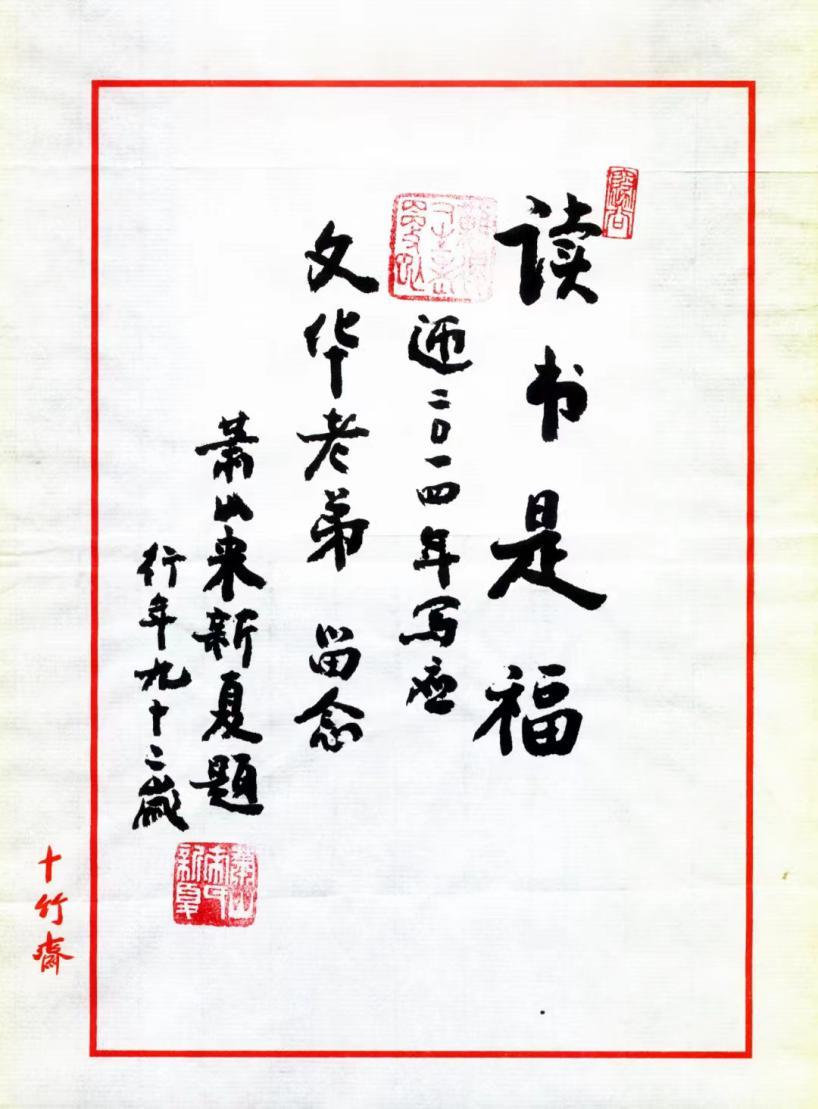 邃谷
读书是福
迎二〇一四年写应
文华老弟 留念
萧山来新夏题
行年九十二嵗
十竹齋